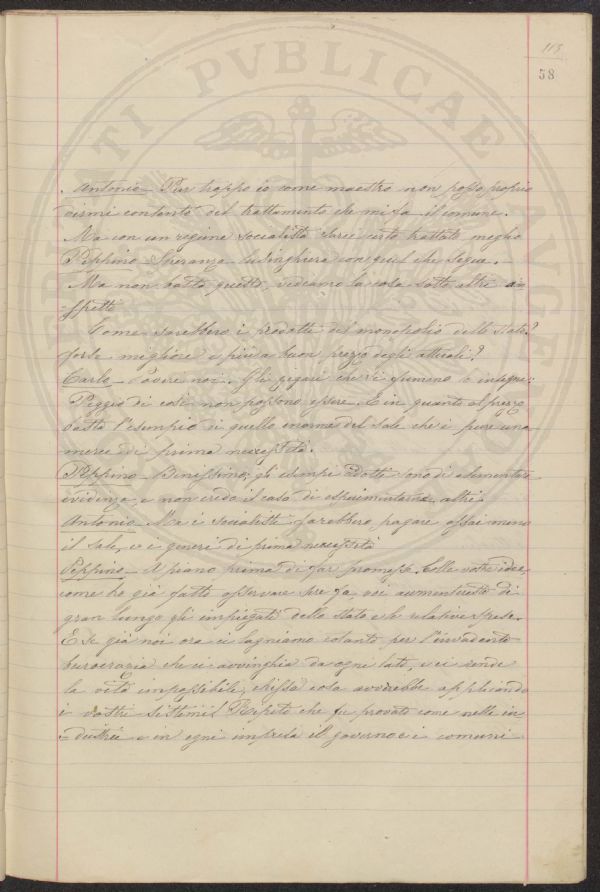 113
58
Antonio - Pur troppo io come maestro non posso proprio
dirmi contento del trattamento che mi fa il comune.
Ma con un regime socialista sarei certo trattato meglio
Peppino - Speranza lusinghiera con quel che segue.
Ma non basta questo, vediamo la cosa sotto altri a-
-spetti
Come sarebbero i prodotti del monopolio dello stato?
forse migliori e più a buon prezzo degli attuali?
Carlo - Poveri noi. Gli zigari che si fumano lo insegnano
Peggio di così non possono essere. E in quanto al prezzo
basta l'esempio di quello enorme del sale che è pure una
merce di prima necessità.
Peppino - Benissimo; gli esempi addotti sono di elementare
evidenza, e non credo il caso di esperimentarne altri
Antonio - Ma i socialisti farebbero pagare assai meno
il sale, e i generi di prima necessità
Peppino - Adpiano prima di far promesse. Colle vostre idee,
come ho già fatto osservare voi aumentereste di
gran lunga gli impiegati dello stato e le relative spese.
E se già noi ora ci lagniamo cotanto per l'invadente
burocrazia che ci avvinghia da ogni lato, e ci rende
la vita impossibile, chissà cosa avverrebbe applicando
i vostri sistemi! Ripeto che fu provato come nelle in-
-dustrie e in ogni impresa il governo e i comuni
PVBLICAE